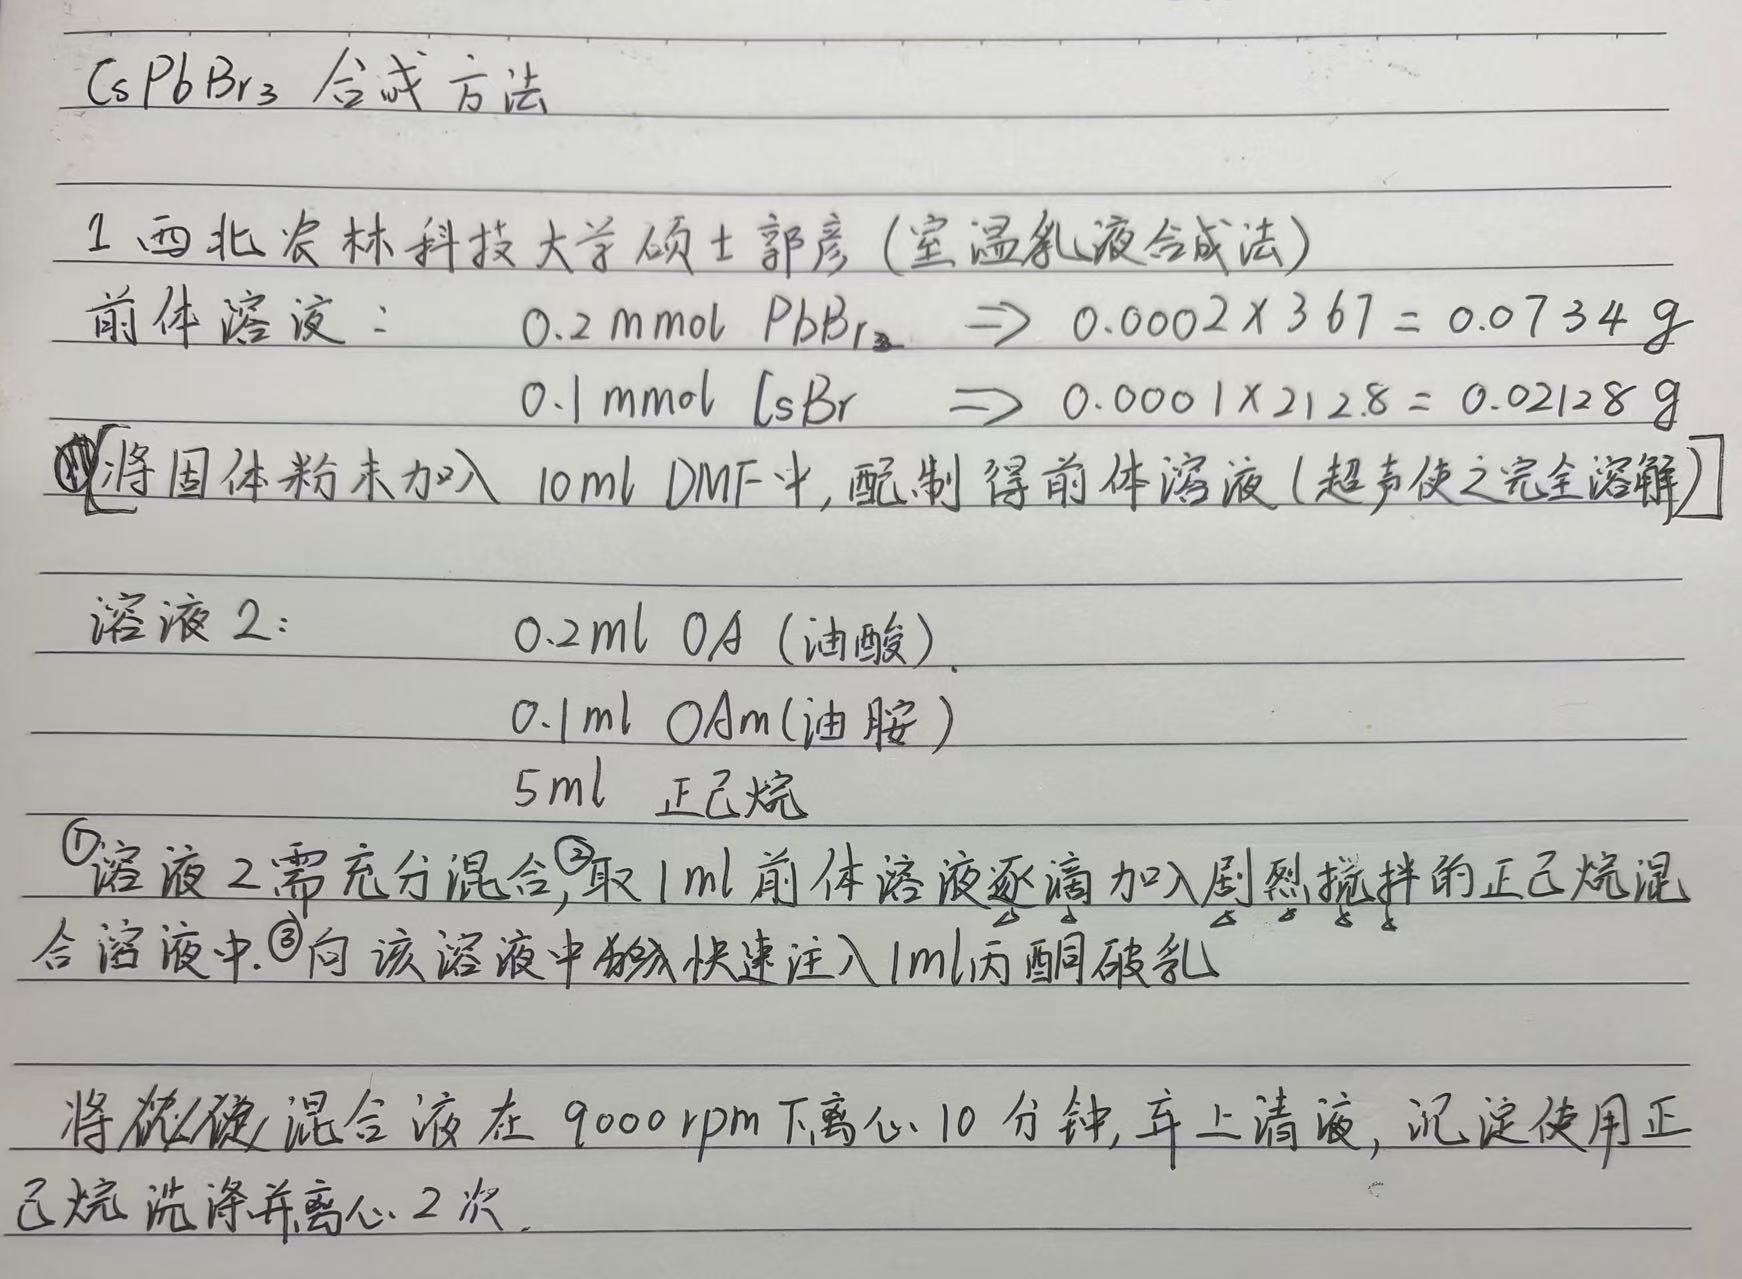 CsPbBr₃ 合成方法
1 西北农林科技大学硕士郭彦(室温乳液合成法)
前体溶液: 0.2mmol PbBr₂ ⇒ 0.0002×367=0.0734g
0.1mmol CsBr ⇒ 0.0001×212.8=0.02128g
[将固体粉末加入10ml DMF中,配制得前体溶液(超声使之完全溶解)]
溶液2: 0.2ml OA (油酸).
0.1ml OAm(油胺)
5ml 正己烷
①溶液2需充分混合,②取1ml前体溶液逐滴加入剧烈搅拌的正己烷混
合溶液中.③向该溶液中快速注入1ml丙酮破乳
将混合液在9000rpm下离心10分钟,弃上清液,沉淀使用正
己烷洗涤并离心2次.